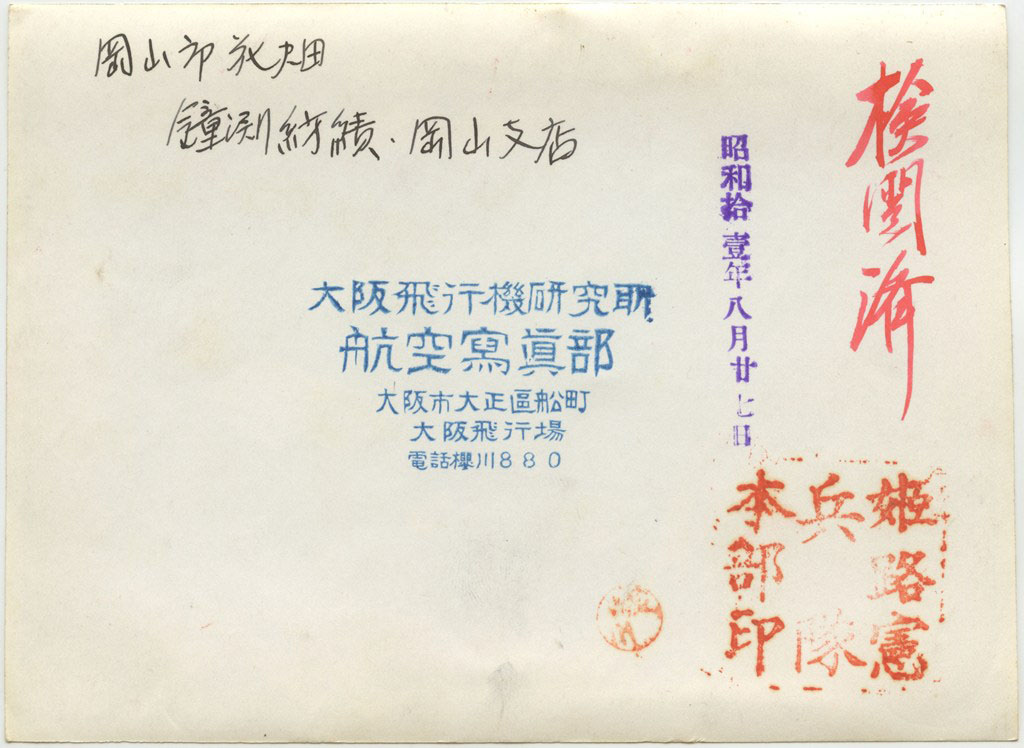 岡山市花畑
鐘渕紡績・岡山支店
検閲済
昭和拾壹年八月廿七日
大阪飛行機研究所
航空寫眞部
大阪市大正區船町
大阪飛行場
電話櫻川880
姫路憲
兵隊
本部印